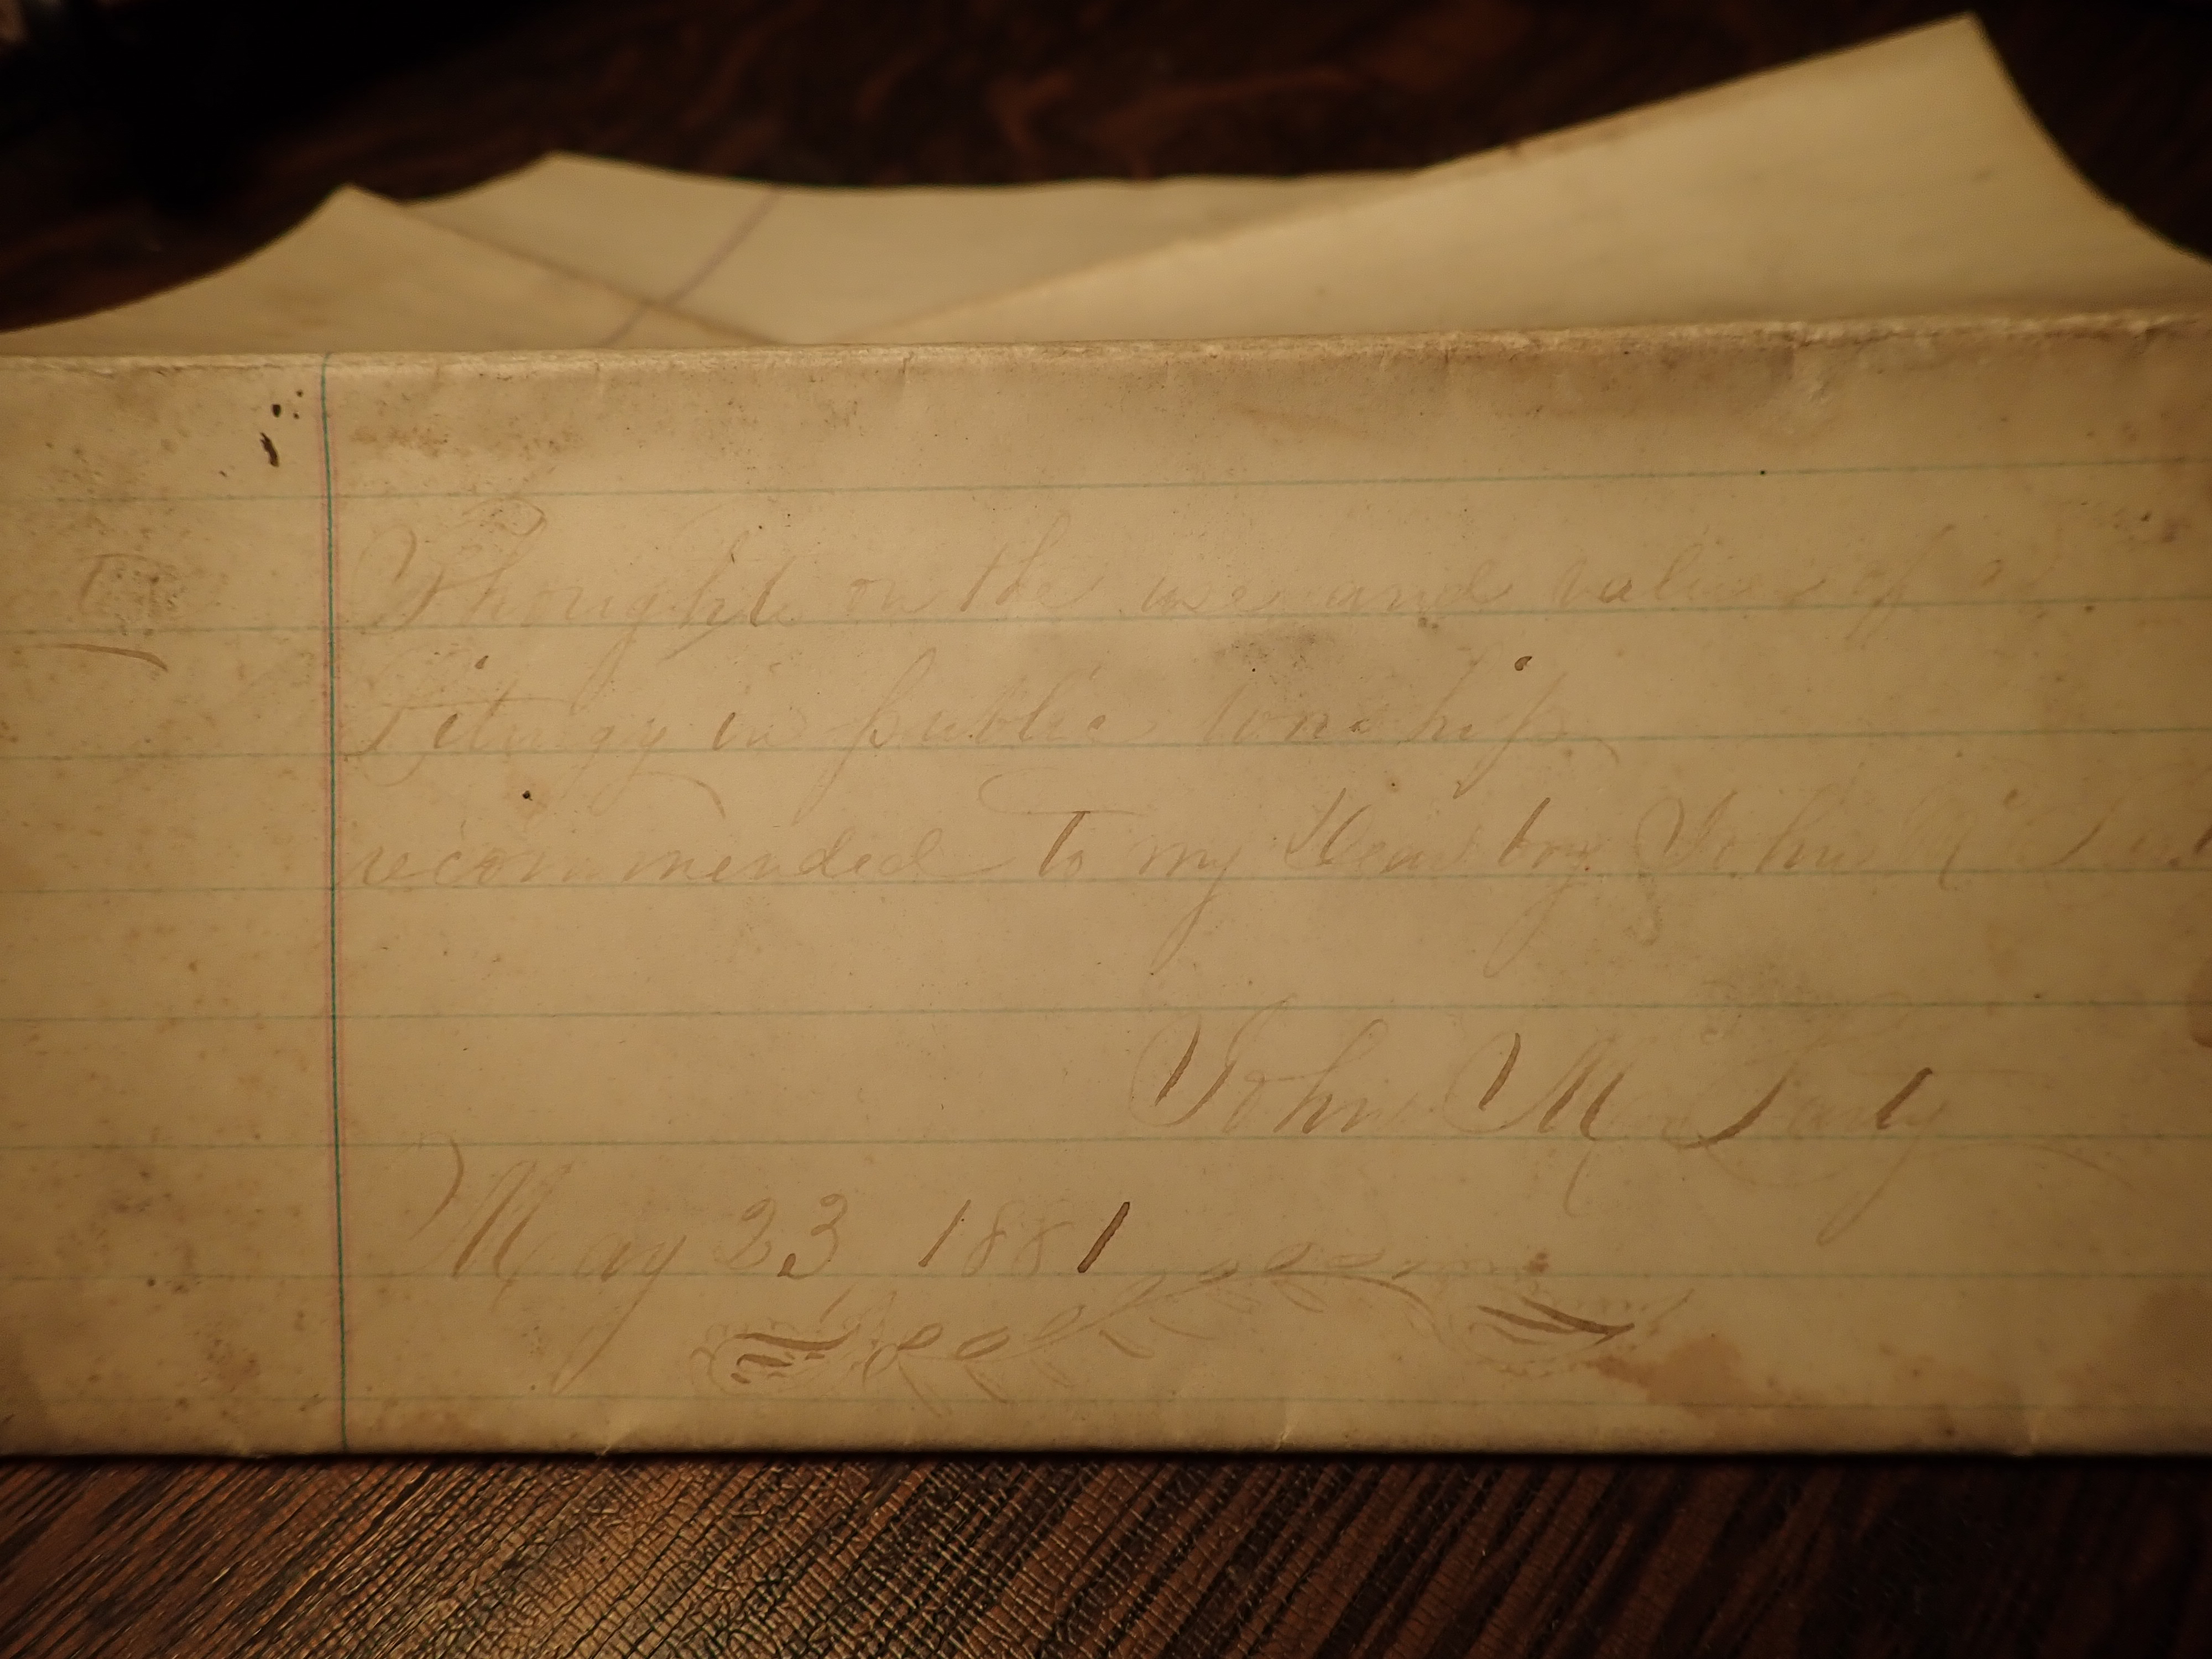 Thoughts on the use and value of a
Liturgy in public worship
recommended to my dear boy John
John
May 23 1881